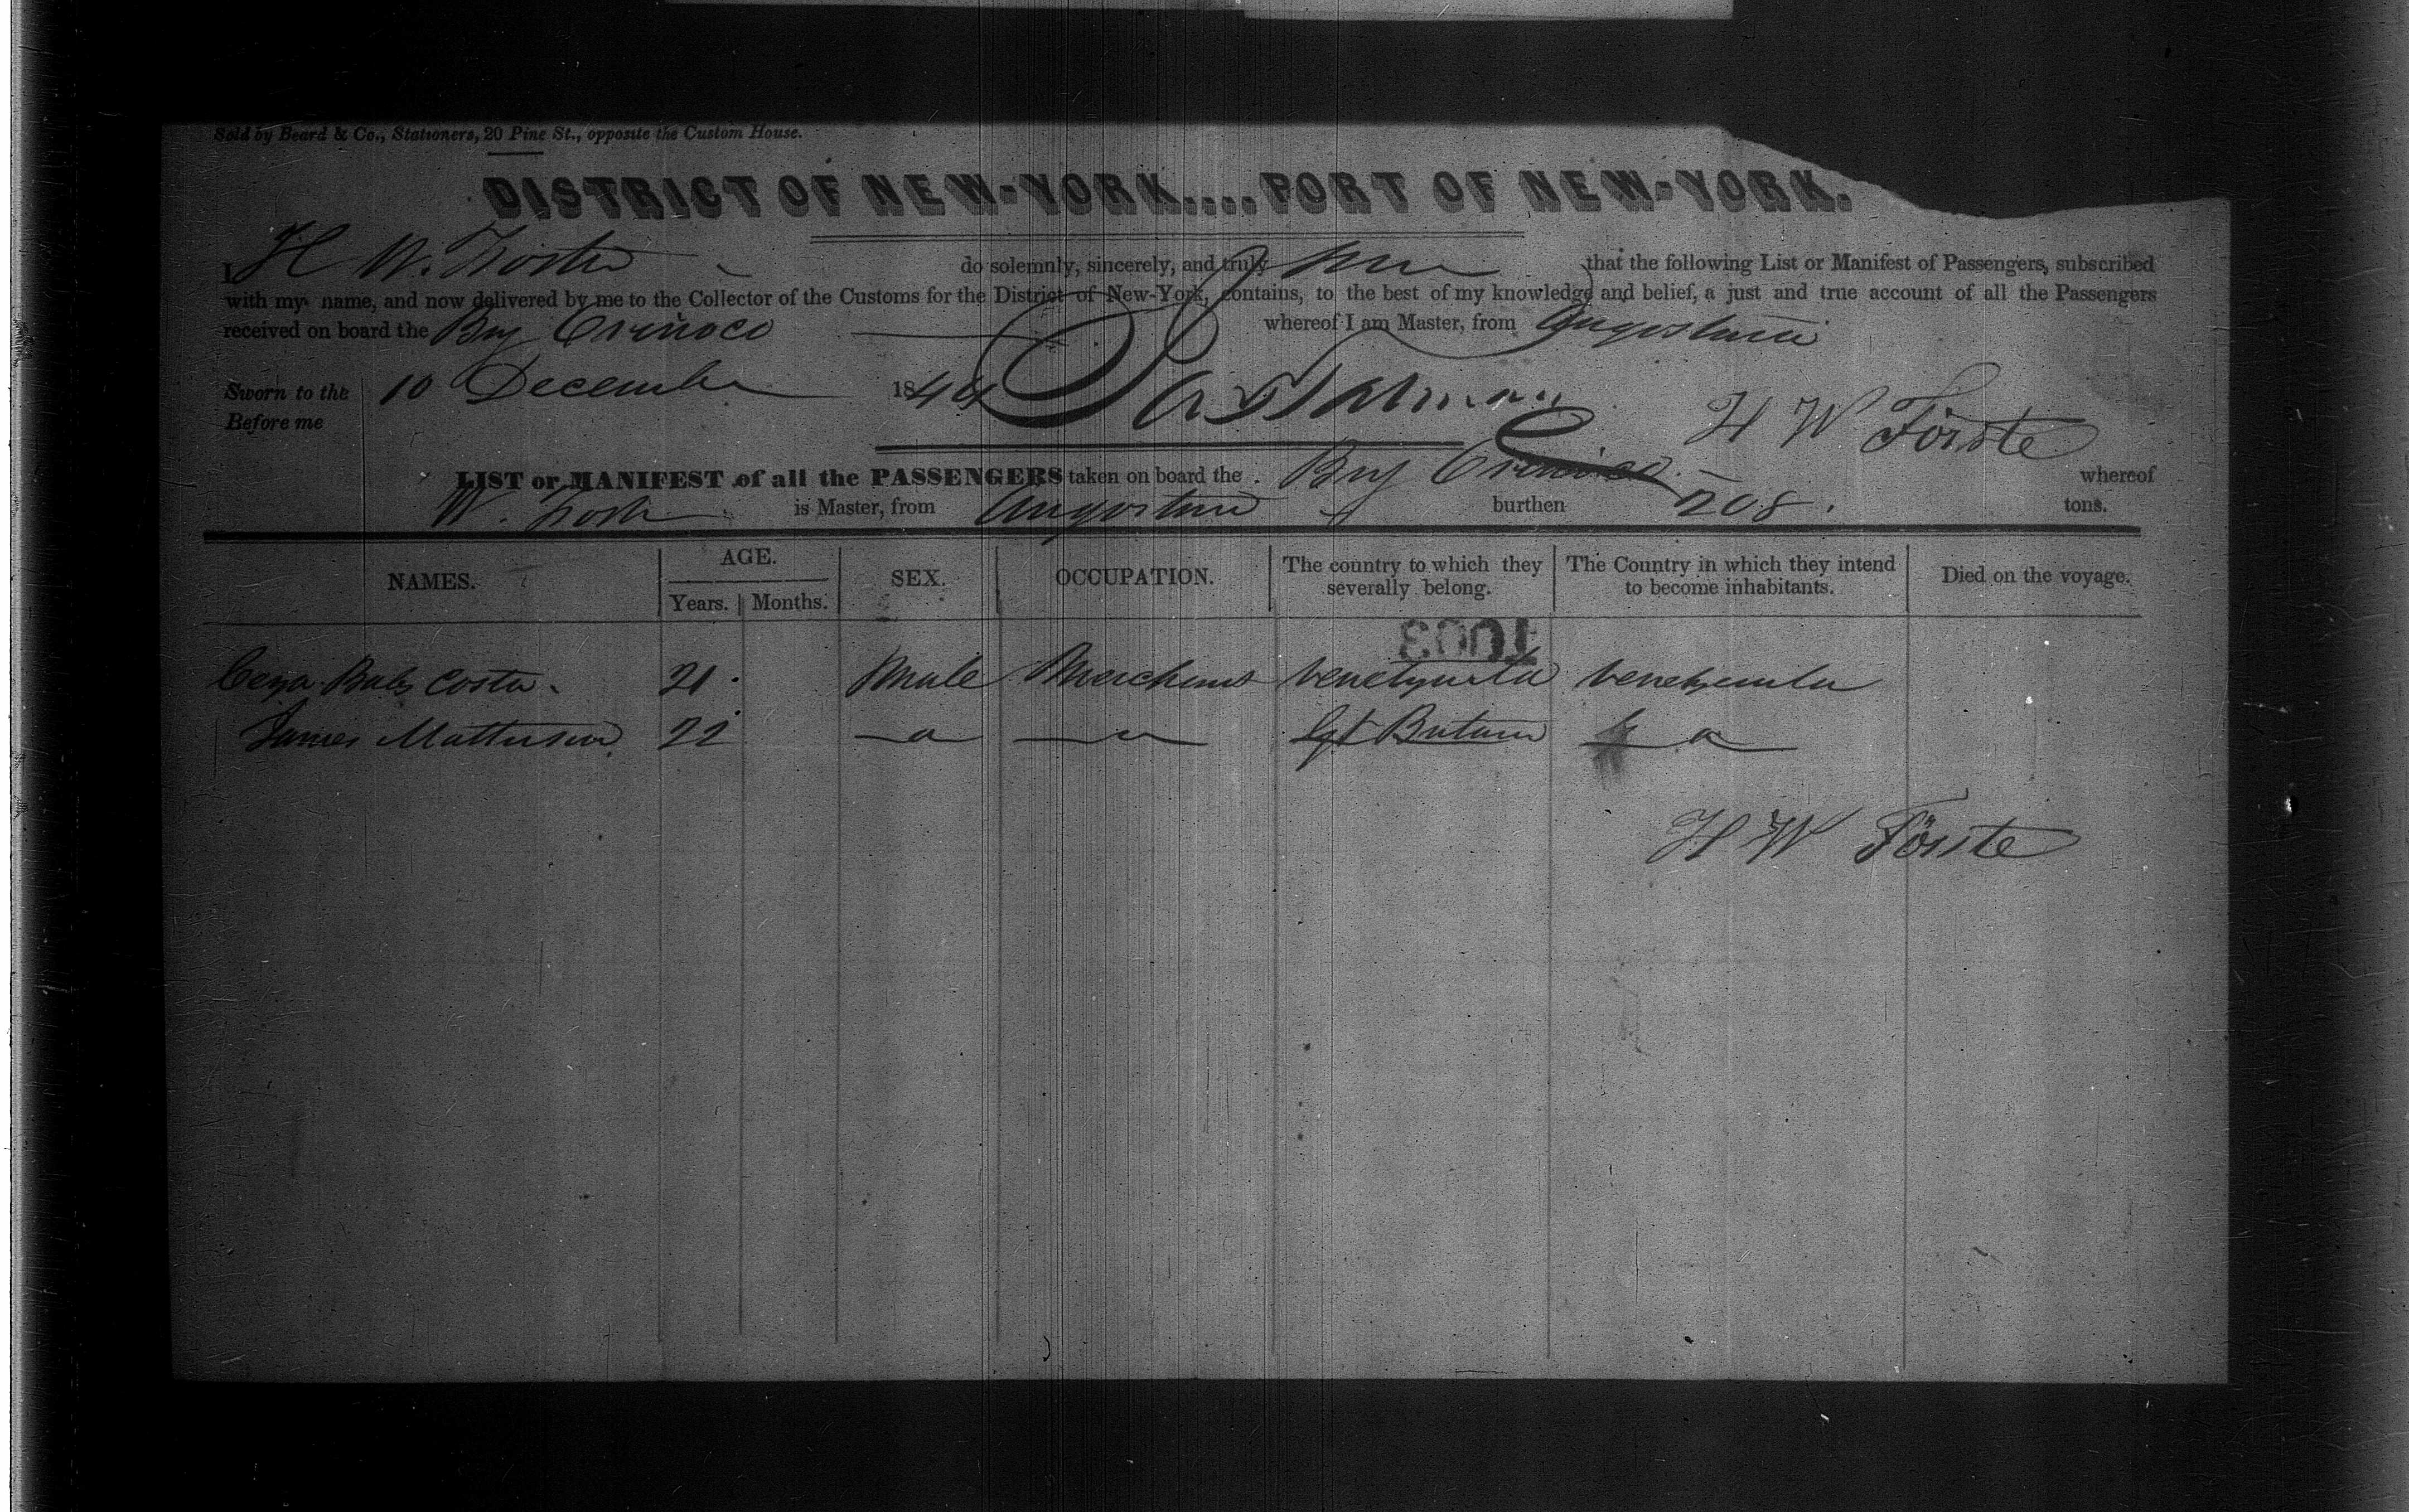 Sold by Beard & Co., Stationers, 20 Pine St., opposite the Custom House.
DISTRICT OF NEW-YORK....PORT OF NEW-YORK.
I H W. do solemnly, sincerely, and truly that the following List or Manifest of Passengers, subscribed
with my name, and now delivered by me to the Collector of the Customs for the District of New-York, contains, to the best of my knowledge and belief, a just and true account of all the Passengers
received on board the Brig Orinoco whereof I am Master, from Angostura
Sworn to the 10 December 1844
Before me
H W Förste
LIST or MANIFEST of all the PASSENGERS taken on board the Brig Orinoco whereof
W. is Master, from Angostura burthen 208. tons.
NAMES. AGE. Years. Months. SEX. OCCUPATION. The country to which they severally belong. The Country in which they intend to become inhabitants. Died on the voyage.
1003
Costa. 21. Male Merchant Venezuela Venezuela
James 22 Gt Britain
H W Förste